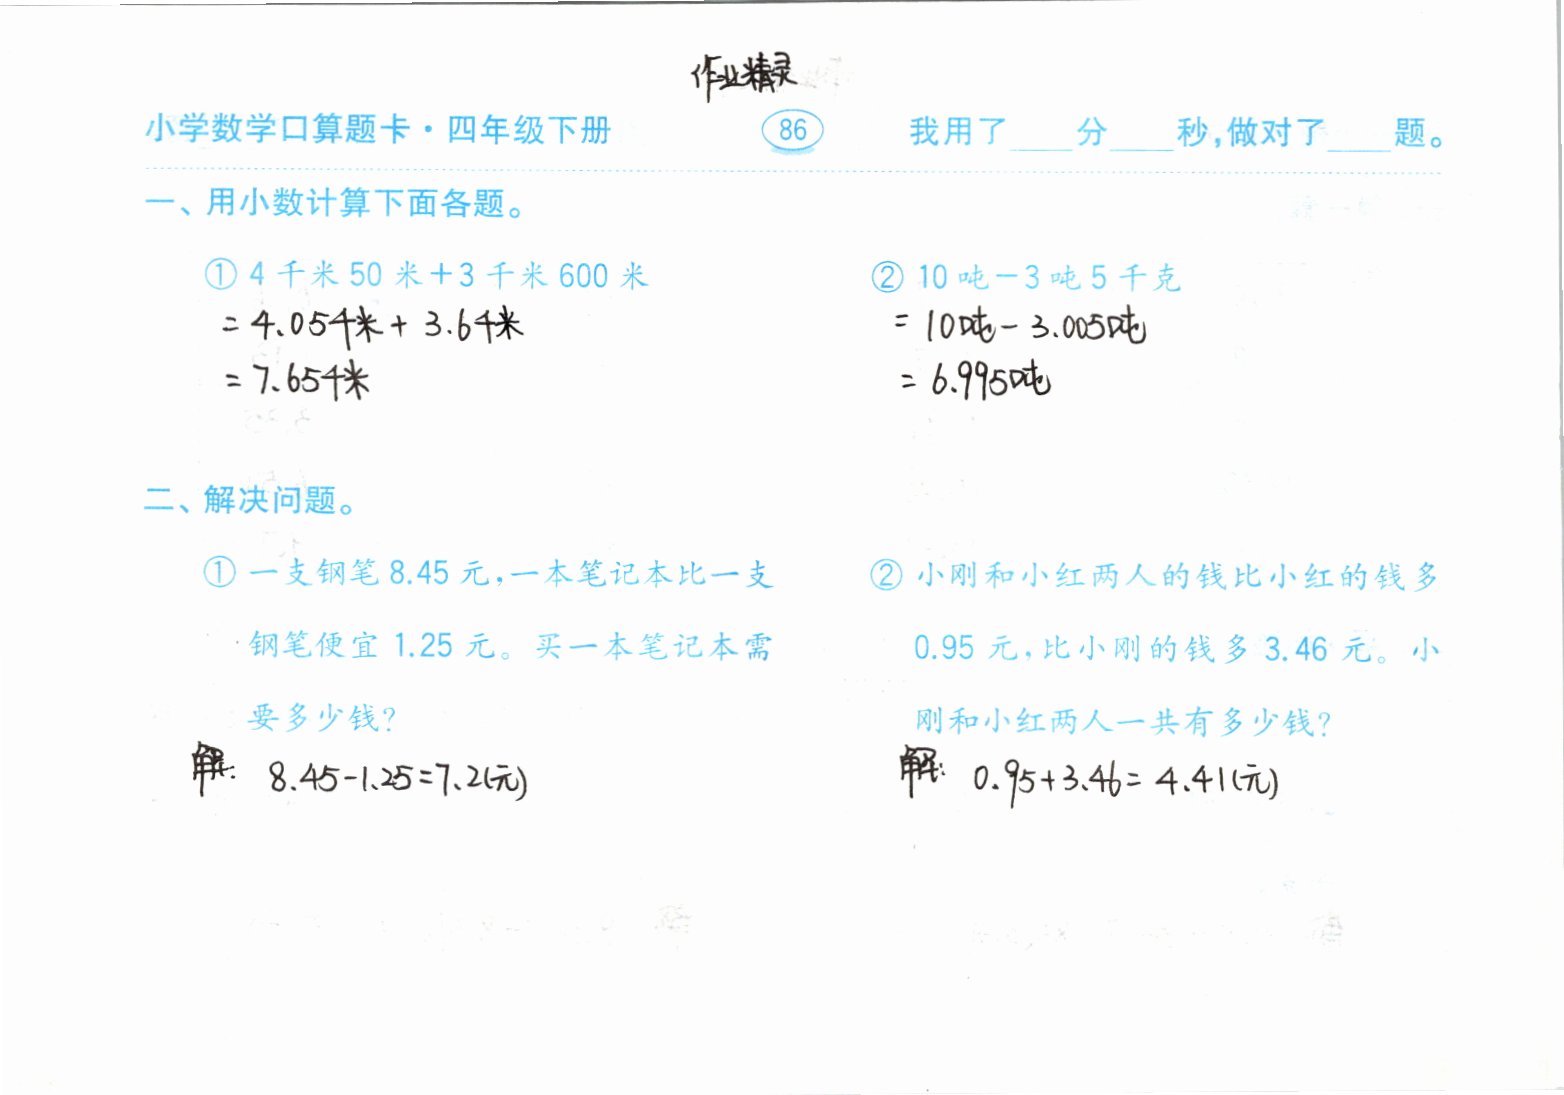 作业精灵
小学数学口算题卡·四年级下册 86 我用了____分____秒,做对了____题。
一、用小数计算下面各题。
① 4 千米 50 米+3 千米 600 米
=4.05千米+3.6千米
=7.65千米
② 10 吨-3 吨 5 千克
=10吨-3.005吨
=6.995吨
二、解决问题。
① 一支钢笔 8.45 元,一本笔记本比一支
钢笔便宜 1.25 元。买一本笔记本需
要多少钱?
解: 8.45-1.25=7.2(元)
② 小刚和小红两人的钱比小红的钱多
0.95 元,比小刚的钱多 3.46 元。小
刚和小红两人一共有多少钱?
解: 0.95+3.46=4.41(元)